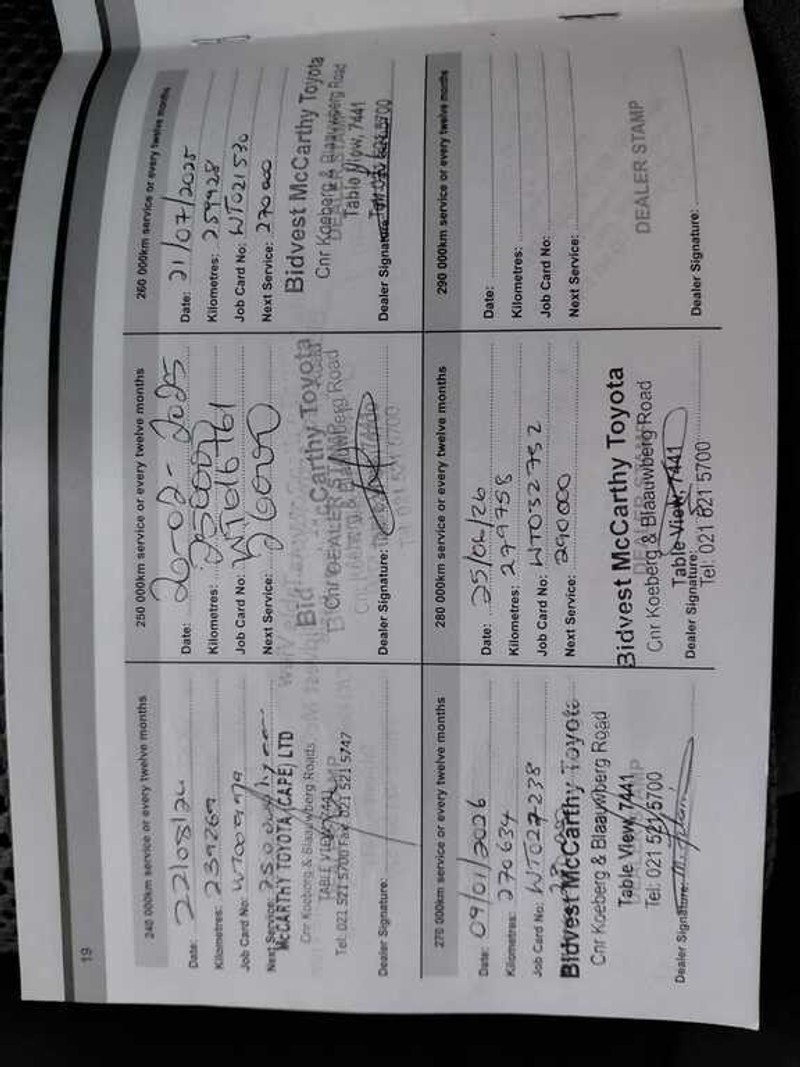 19
240 000km service or every twelve months
Date: 22/08/24
Kilometres: 239269
Job Card No:
Next Service:
McCARTHY TOYOTA (CAPE) LTD
Cnr Koeberg & Blaauwberg Roads
TABLE VIEW
Tel: 021 521 5700 Fax: 021 521 5747
Dealer Signature:
250 000km service or every twelve months
Date: 20-02-2025
Kilometres: 250007
Job Card No: WT016761
Next Service: 260000
McCarthy Toyota
Blaauwberg Road
DEALER
Dealer Signature:
260 000km service or every twelve months
Date: 21/07/2025
Kilometres: 259928
Job Card No: WT021530
Next Service: 270 000
Bidvest McCarthy Toyota
Cnr Koeberg & Blaauwberg Road
DEALER STAMP
Table View, 7441
Dealer Signature:
270 000km service or every twelve months
Date: 09/01/2026
Kilometres: 270634
Job Card No: WT027238
Bidvest McCarthy Toyota
Cnr Koeberg & Blaauwberg Road
Table View, 7441
Tel: 021 521 5700
Dealer Signature:
280 000km service or every twelve months
Date: 25/06/26
Kilometres: 279758
Job Card No: WT032752
Next Service: 290000
Bidvest McCarthy Toyota
Cnr Koeberg & Blaauwberg Road
Table View, 7441
Dealer Signature:
Tel: 021 521 5700
290 000km service or every twelve months
Date:
Kilometres:
Job Card No:
Next Service:
DEALER STAMP
Dealer Signature: